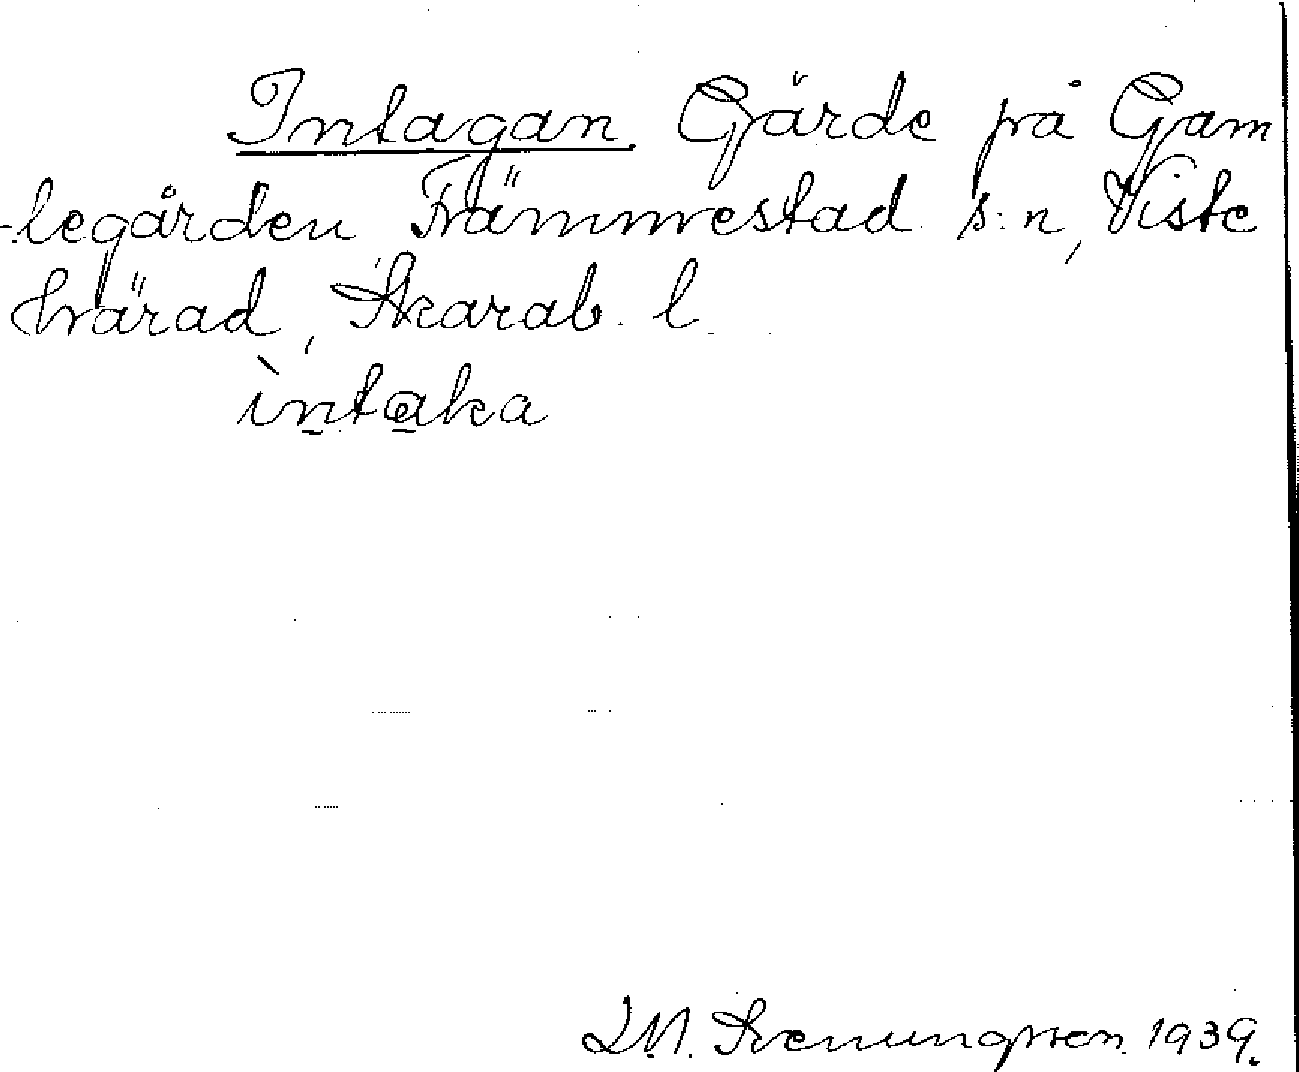 Intagan. Gärde på Gam
-legården Främmestad s:n, Viste
härad, Skarab. l.
ìntaka
I.M. Svenungsson. 1939.